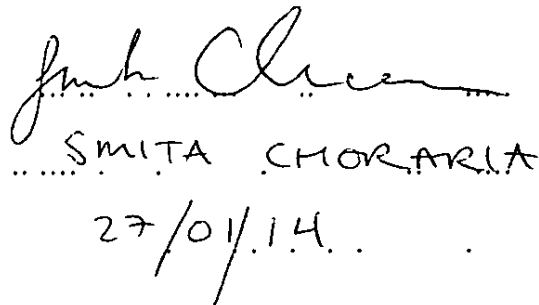 SMITA CHORARIA
27/01/14